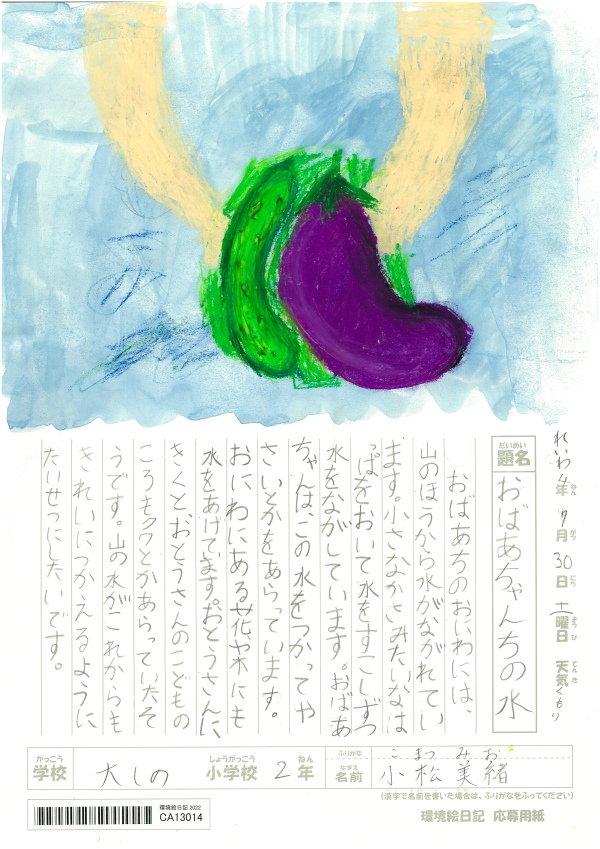 れいわ4年7月30日土曜日 天気くもり
ねん がつ にち ようび てんき
だいめい
題名
おばあちゃんちの水
おばあちのおにわには、
山のほうから水がながれてい
ます。小さなかさみたいなは
っぱをおいて水をすこしずつ
水をながしています。おばあ
ちゃんは、この水をつかってや
さいとかをあらっています。
おにわにある花や木にも
水をあげています。おとうさんに
きくと、おとうさんのこどもの
ころもクワとかあらっていたそ
うです。山の水がこれからも
きれいにつかえるように
たいせつにしたいです。
がっこう
学校
大しの
しょうがっこう
小学校
2
ねん
年
ふりがな
こまつ みお
なまえ
名前
小松 美緒
(漢字で名前を書いた場合は、ふりがなをふってください)
環境絵日記 2022
CA13014
環境絵日記 応募用紙